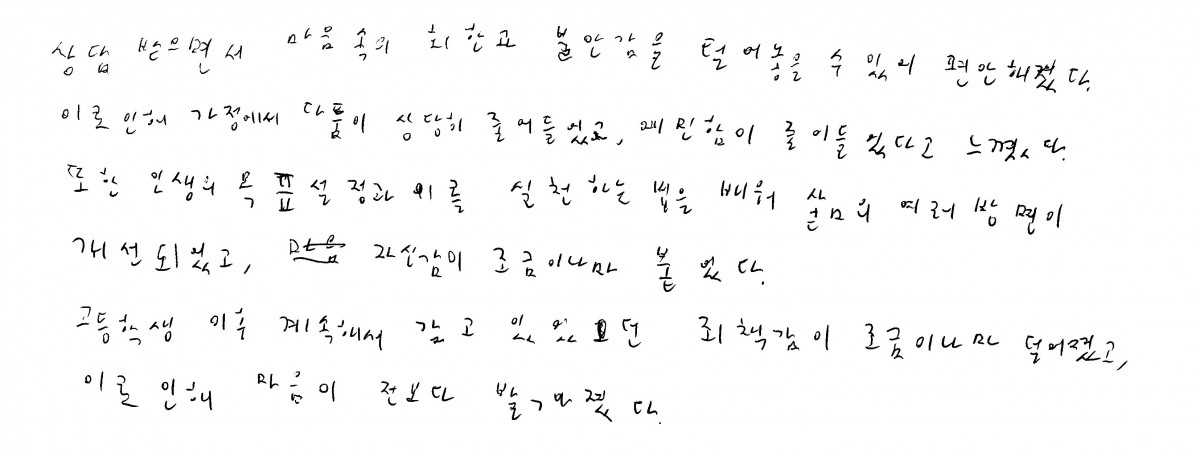 상담 받으면서 마음 속의 회한과 불안감을 털어놓을 수 있어 편안해졌다.
이로 인해 가정에서 다툼이 상당히 줄어들었고, 예민함이 줄어들었다고 느꼈다.
또한 인생의 목표 설정과 이를 실천하는 법을 배워 삶의 여러 방면이
개선되었고, 자신감이 조금이나마 붙었다.
고등학생 이후 계속해서 갖고 있었던 죄책감이 조금이나마 덜어졌고,
이로 인해 마음이 전보다 밝아졌다.